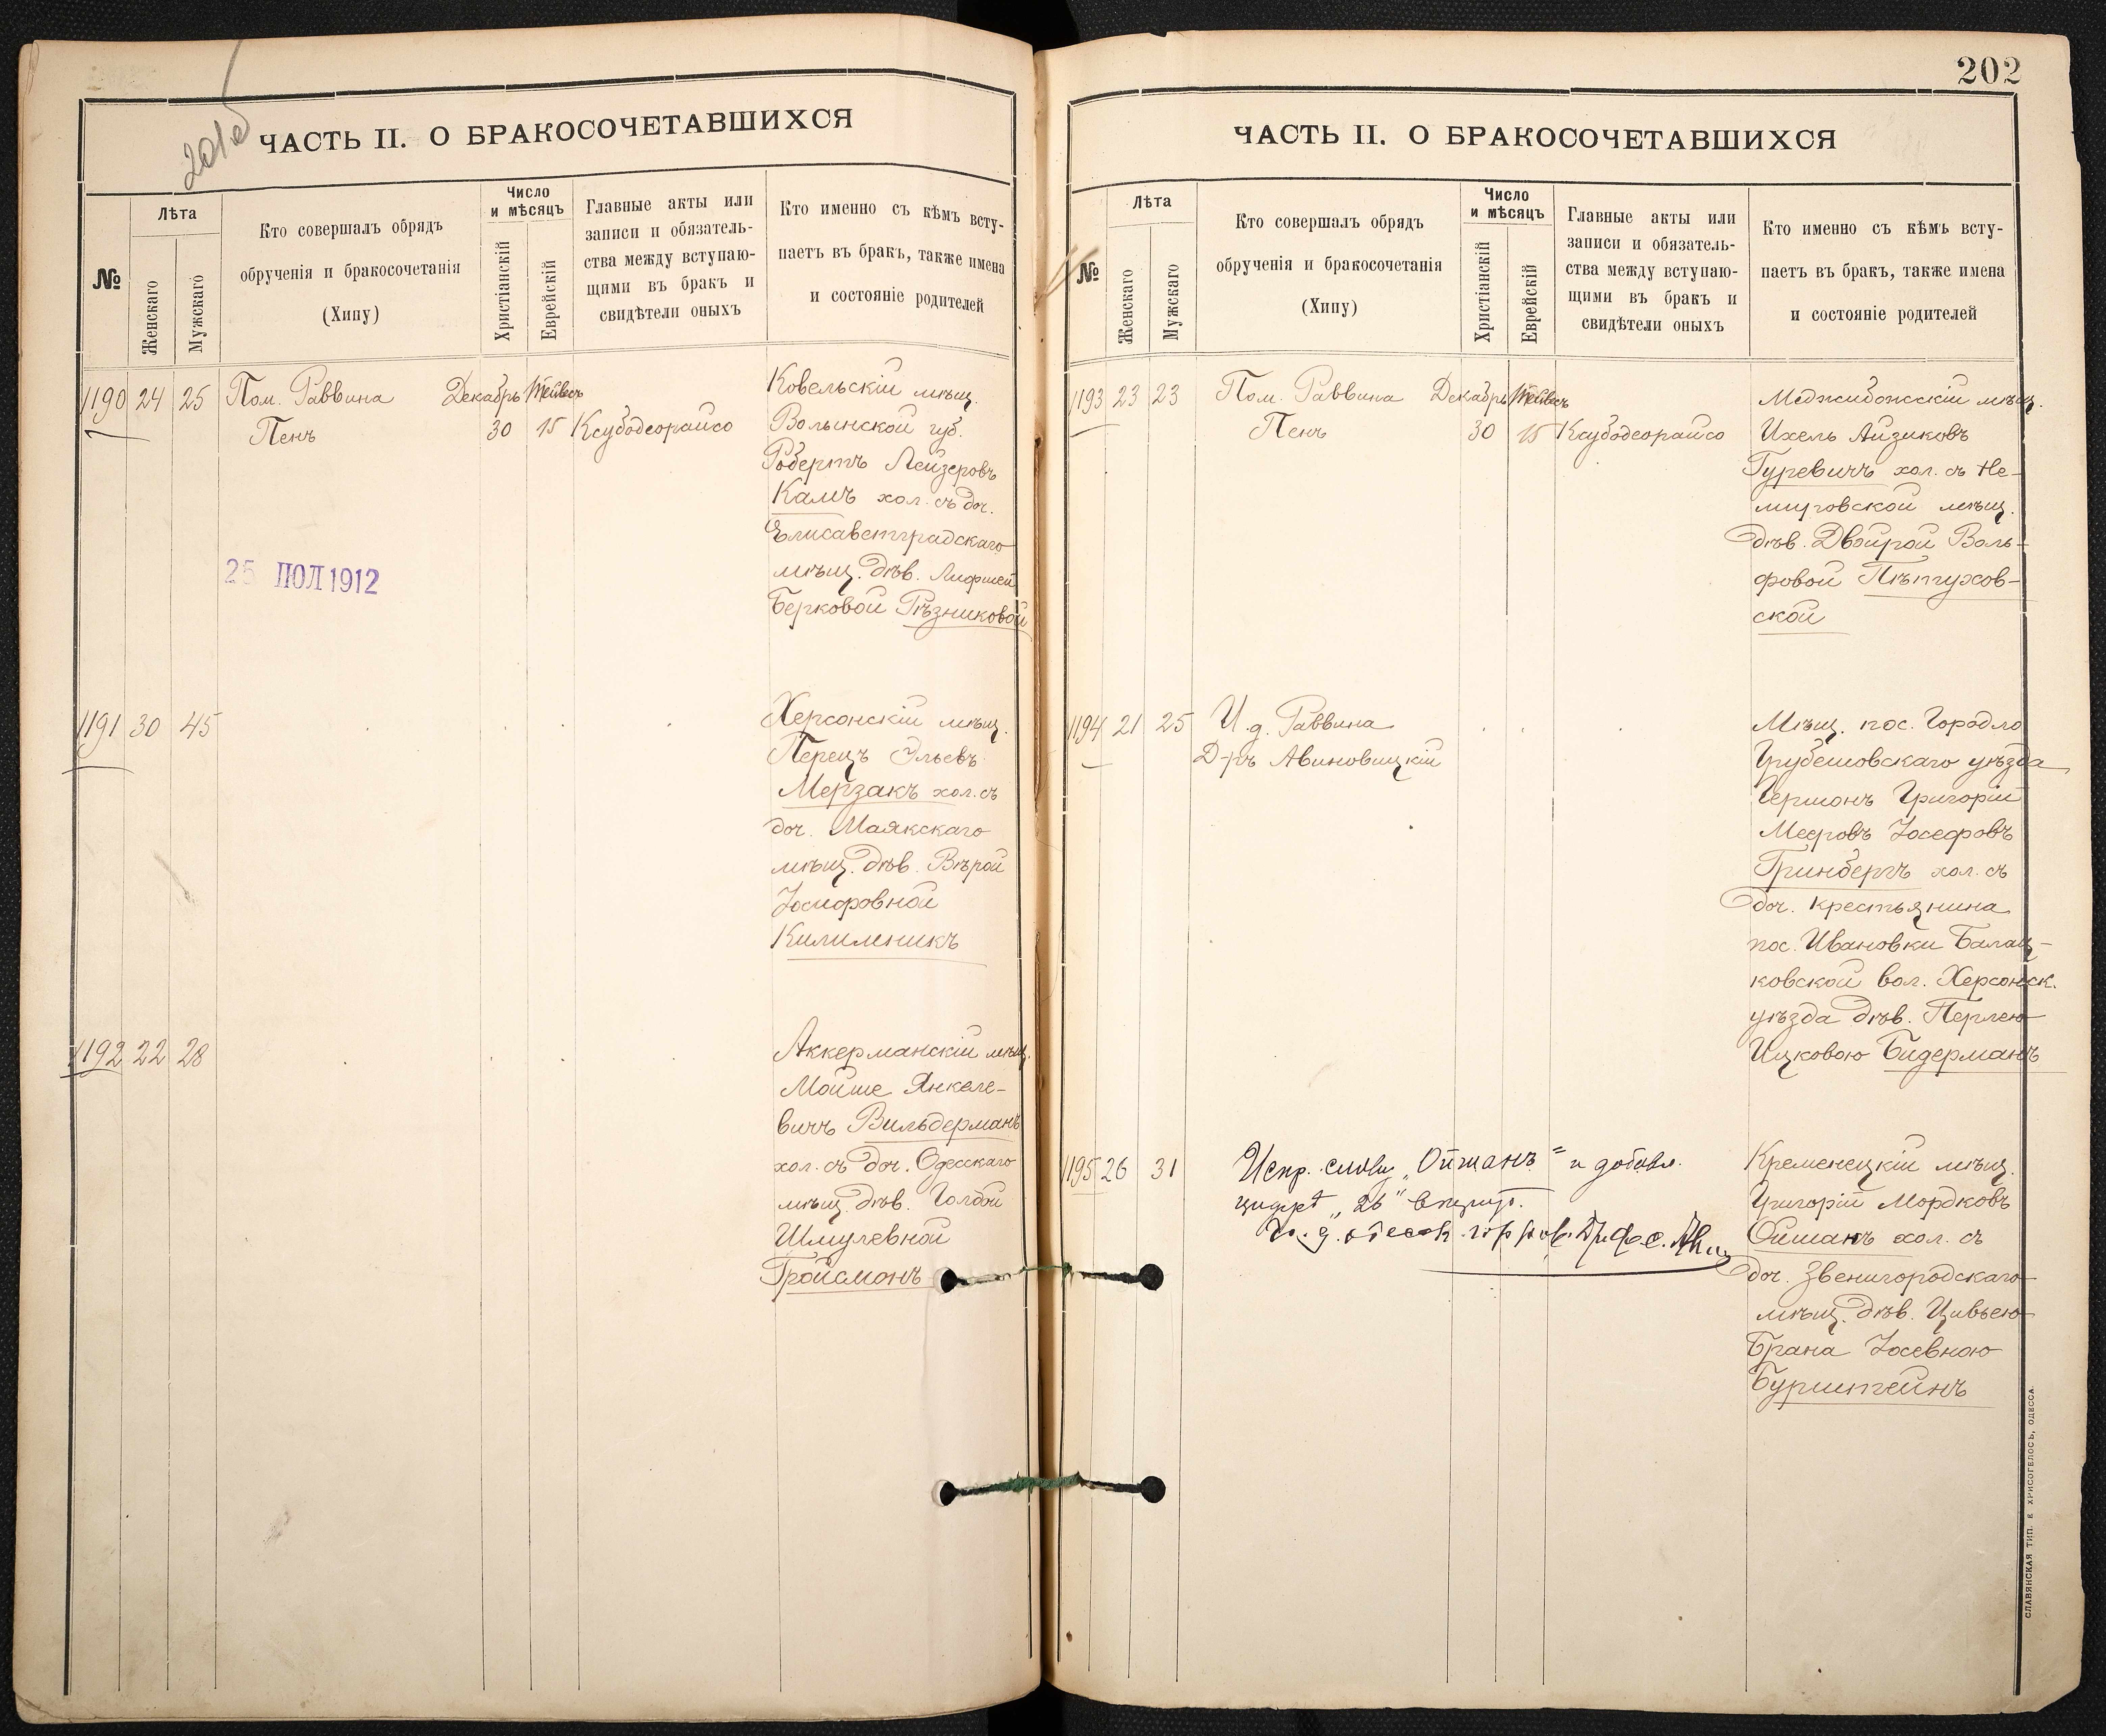 201об
ЧАСТЬ II. О БРАКОСОЧЕТАВШИХСЯ
№
Лѣта
Женскаго
Мужскаго
Кто совершалъ обрядъ
обрученія и бракосочетанія
(Хипу)
Число
и мѣсяцъ
Христіанскій
Еврейскій
Главные акты или
записи и обязатель-
ства между вступаю-
щими въ бракъ и
свидѣтели оныхъ
Кто именно съ кѣмъ всту-
паетъ въ бракъ, также имена
и состояніе родителей
1190 24 25 Пом. Раввина Декабрь Тейвесъ
Пенъ 30 15 Ксубодеорайсо
Ковельскій мѣщ.
Волынской губ.
Робертъ Лейзеровъ
Камъ хол. съ доч.
Елисаветградскаго
мѣщ. дѣв. Лифшей
Берковой Рѣзниковой
25 ІЮЛ 1912
1191 30 45
Херсонскій мѣщ.
Перецъ Эльевъ
Мерзакъ хол. съ
доч. Маякскаго
мѣщ. дѣв. Вѣрой
Іосифовной
Килименикъ
1192 22 28
Аккерманскій мѣщ.
Мойше Янкеле-
вичъ Вильдерманъ
хол. съ доч. Одесскаго
мѣщ. дѣв. Голдой
Шмулевной
Гройсманъ
202
ЧАСТЬ II. О БРАКОСОЧЕТАВШИХСЯ
№
Лѣта
Женскаго
Мужскаго
Кто совершалъ обрядъ
обрученія и бракосочетанія
(Хипу)
Число
и мѣсяцъ
Христіанскій
Еврейскій
Главные акты или
записи и обязатель-
ства между вступаю-
щими въ бракъ и
свидѣтели оныхъ
Кто именно съ кѣмъ всту-
паетъ въ бракъ, также имена
и состояніе родителей
1193 23 23 Пом. Раввина Декабрь Тейвесъ
Пенъ 30 15 Ксубодеорайсо
Меджибожскій мѣщ.
Ихель Айзиковъ
Гуревичъ хол. съ Не-
мировской мѣщ.
дѣв. Двойрой Воль-
фовой Пѣтухов-
ской
1194 21 25 И. д. Раввина
Д-ръ Авиновицкій
Мѣщ. пос. Городло
Грубешовскаго уѣзда
Гершонъ Григорій
Мееровъ Іосефовъ
Гринбергъ хол. съ
доч. крестьянина
пос. Ивановки Балац-
ковской вол. Херсонск.
уѣзда дѣв. Перлею
Ицковою Бидерманъ
1195 26 31
Испр. слову „Ойманъ" и добавл.
цифрѣ „26" вѣрить.
И. д. одесск. гор. рав.
Кременецкій мѣщ.
Григорій Мордковъ
Ойманъ хол. съ
доч. Звенигородскаго
мѣщ. дѣв. Цивьею
Брана Іосевною
Бурштейнъ
СЛАВЯНСКАЯ ТИП. Е. ХРИСОГЕЛОСЪ, ОДЕССА.